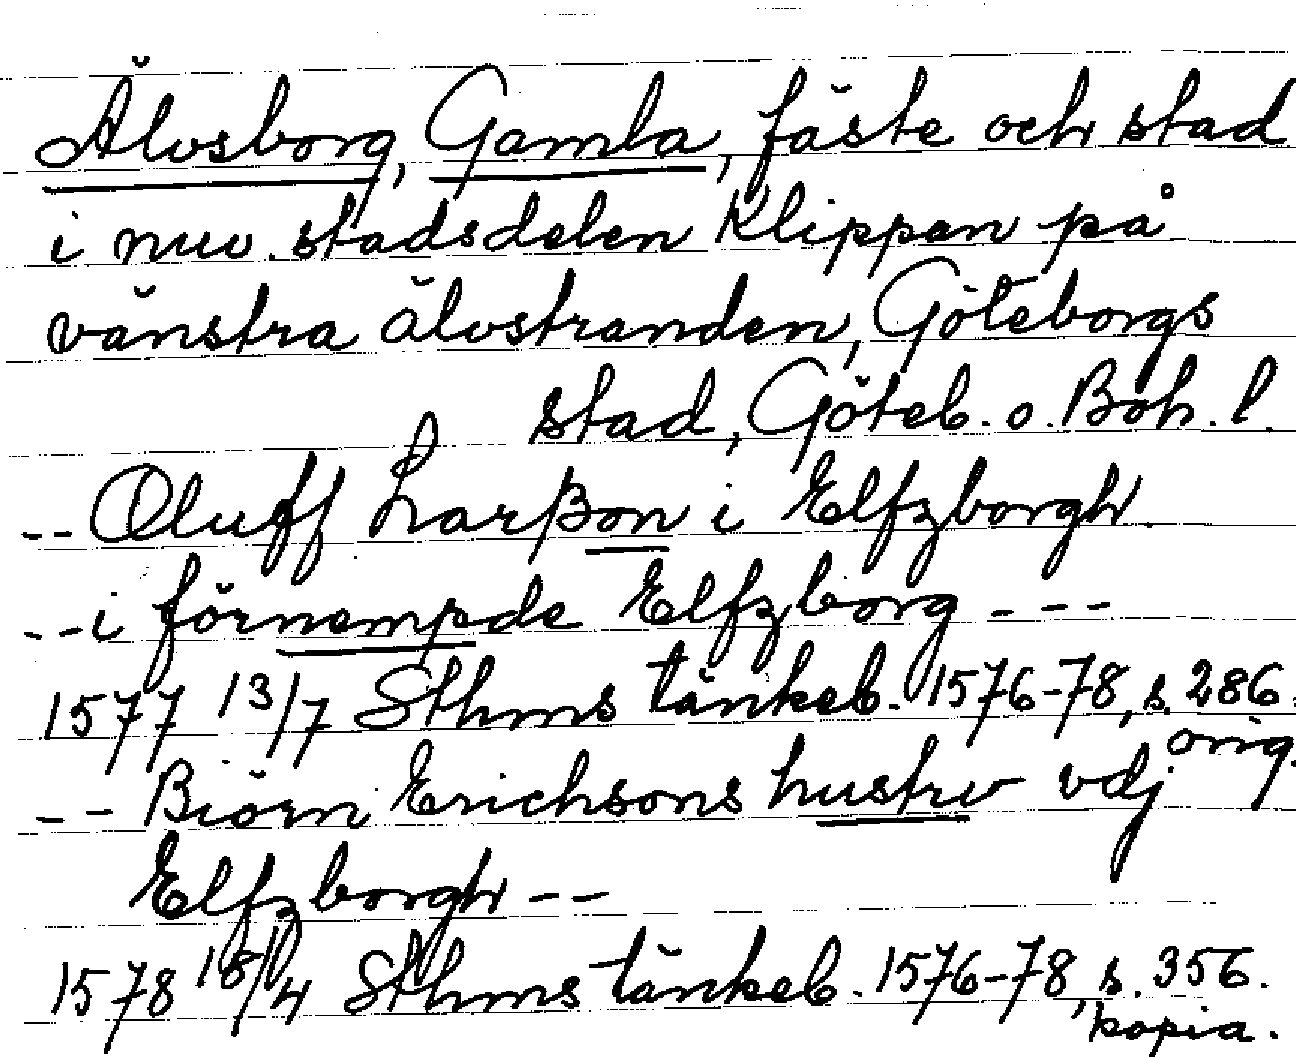 Älvsborg, Gamla, fäste och stad
i nuv. stadsdelen Klippan på
vänstra älvstranden, Göteborgs
stad, Göteb. o. Boh. l.
-- Oluff Larßon i Elfzborgh.
-- i förnempde Elfzborg ---
1577 13/7 Sthms tänkeb. 1576-78, s. 286.
orig.
-- Biörn Erichsons hustrv vdj
Elfzborgh --
1578 18/4 Sthms tänkeb. 1576-78, s. 356.
kopia.